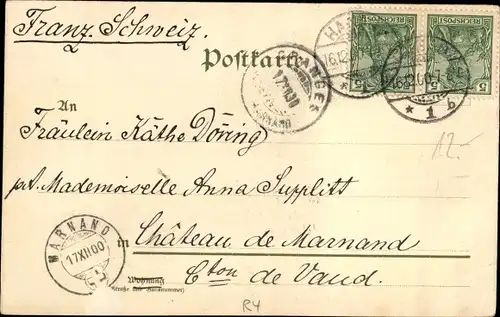 Franz. Schweiz.
Postkarte
REICHSPOST
REICHSPOST
5
5
5
5
16.12.00.7-8
* 1 b
GRANGES
17 XII 00
MARNAND
An
Fräulein Käthe Döring
12.-
Mademoiselle Anna Supplitt
MARNAND
17 XII 00
in Château de Marnand
Cton de Vaud.
Wohnung
(Straße und Hausnummer)
R4